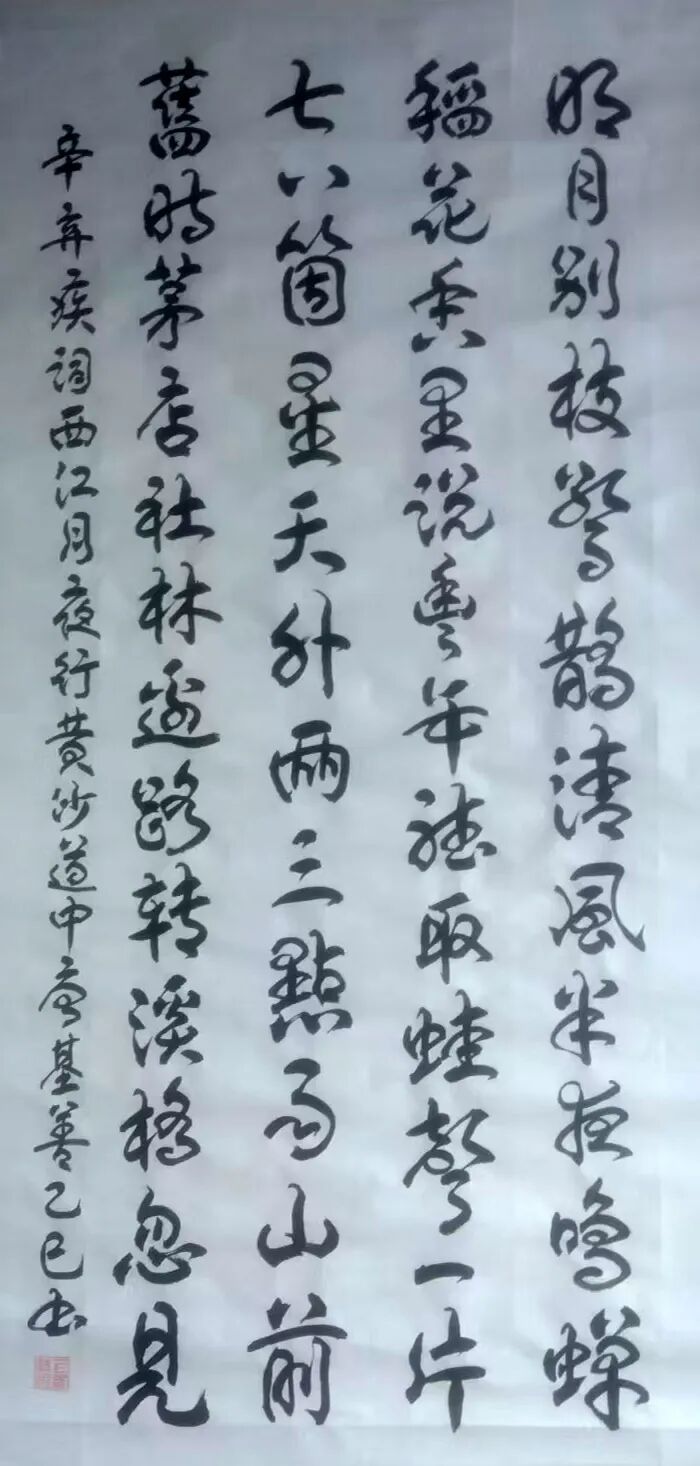 明月别枝驚鵲清風半夜鳴蟬
稻花香里說豐年聽取蛙聲一片
七八箇星天外兩三點雨山前
舊時茅店社林邊路轉溪橋忽見
辛弃疾詞西江月夜行黄沙道中 基善乙巳书